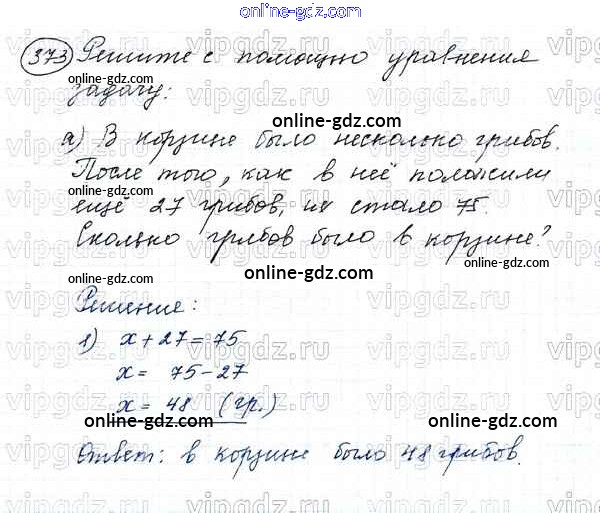 online-gdz.com
373 Решите с помощью уравнения
online-gdz.com online-gdz.com
задачу:
а) В корзине было несколько грибов.
После того, как в неё положили
ещё 27 грибов, их стало 75.
Сколько грибов было в корзине?
online-gdz.com online-gdz.com
Решение:
1) x + 27 = 75
x = 75 - 27
x = 48 (гр.)
online-gdz.com online-gdz.com
Ответ: в корзине было 48 грибов.
vipgdz.ru vipgdz.ru vipgdz.ru